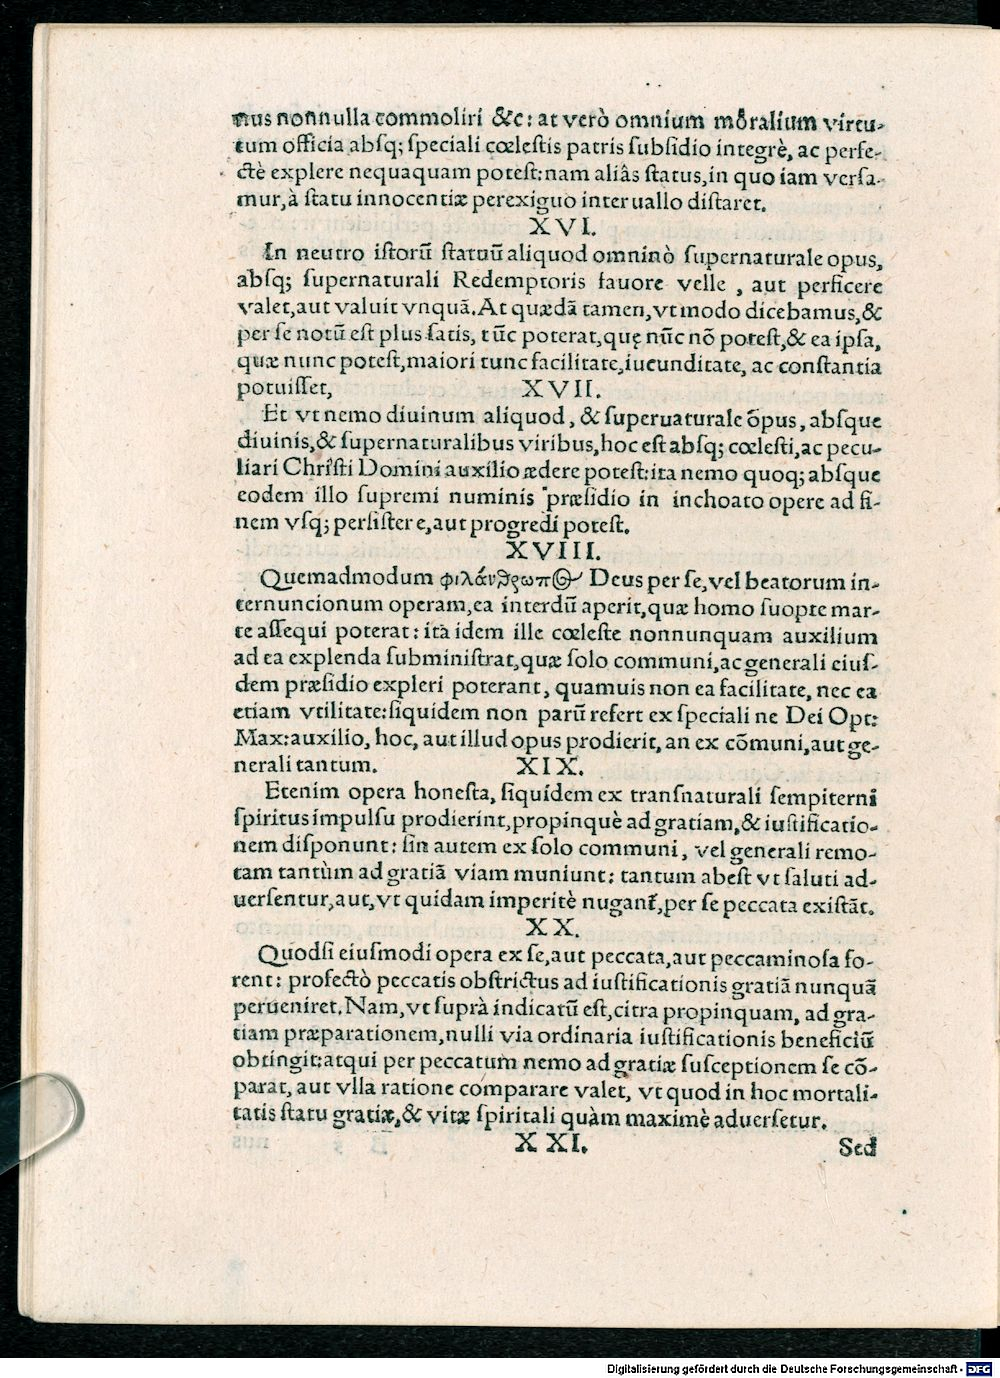 nus nonnulla commoliri &c: at verò omnium moralium virtu-
tum officia absq; speciali cœlestis patris subsidio integrè, ac perfe-
ctè explere nequaquam potest: nam aliâs status, in quo iam versa-
mur, à statu innocentiæ perexiguo interuallo distaret.
XVI.
In neutro istorũ statuũ aliquod omninò supernaturale opus,
absq; supernaturali Redemptoris fauore velle, aut perficere
valet, aut valuit vnquã. At quædã tamen, vt modo dicebamus, &
per se notũ est plus satis, tũc poterat, quę nũc nõ potest, & ea ipsa,
quæ nunc potest, maiori tunc facilitate, iucunditate, ac constantia
potuisset,
XVII.
Et vt nemo diuinum aliquod, & superuaturale õpus, absque
diuinis, & supernaturalibus viribus, hoc est absq; cœlesti, ac pecu-
liari Christi Domini auxilio ædere potest: ita nemo quoq; absque
eodem illo supremi numinis præsidio in inchoato opere ad fi-
nem vsq; persistere, aut progredi potest.
XVIII.
Quemadmodum φιλάνθρωπος Deus per se, vel beatorum in-
ternuncionum operam, ea interdũ aperit, quæ homo suopte mar-
te assequi poterat: ita idem ille cœleste nonnunquam auxilium
ad ea explenda subministrat, quæ solo communi, ac generali eius-
dem præsidio expleri poterant, quamuis non ea facilitate, nec ea
etiam vtilitate: siquidem non parũ refert ex speciali ne Dei Opt:
Max: auxilio, hoc, aut illud opus prodierit, an ex cõmuni, aut ge-
nerali tantum.
XIX.
Etenim opera honesta, siquidem ex transnaturali sempiterni
spiritus impulsu prodierint, propinquè ad gratiam, & iustificatio-
nem disponunt: sin autem ex solo communi, vel generali remo-
tam tantùm ad gratiã viam muniunt: tantum abest vt saluti ad-
uersentur, aut, vt quidam imperitè nugant᷑, per se peccata existãt.
XX.
Quodsi eiusmodi opera ex se, aut peccata, aut peccaminosa fo-
rent: profectò peccatis obstrictus ad iustificationis gratiã nunquã
perueniret. Nam, vt suprà indicatũ est, citra propinquam, ad gra-
tiam præparationem, nulli via ordinaria iustificationis beneficiũ
obtingit: atqui per peccatum nemo ad gratiæ susceptionem se cõ-
parat, aut vlla ratione comparare valet, vt quod in hoc mortali-
tatis statu gratiæ, & vitæ spiritali quàm maximè aduersetur.
XXI.
Sed
Digitalisierung gefördert durch die Deutsche Forschungsgemeinschaft - DFG